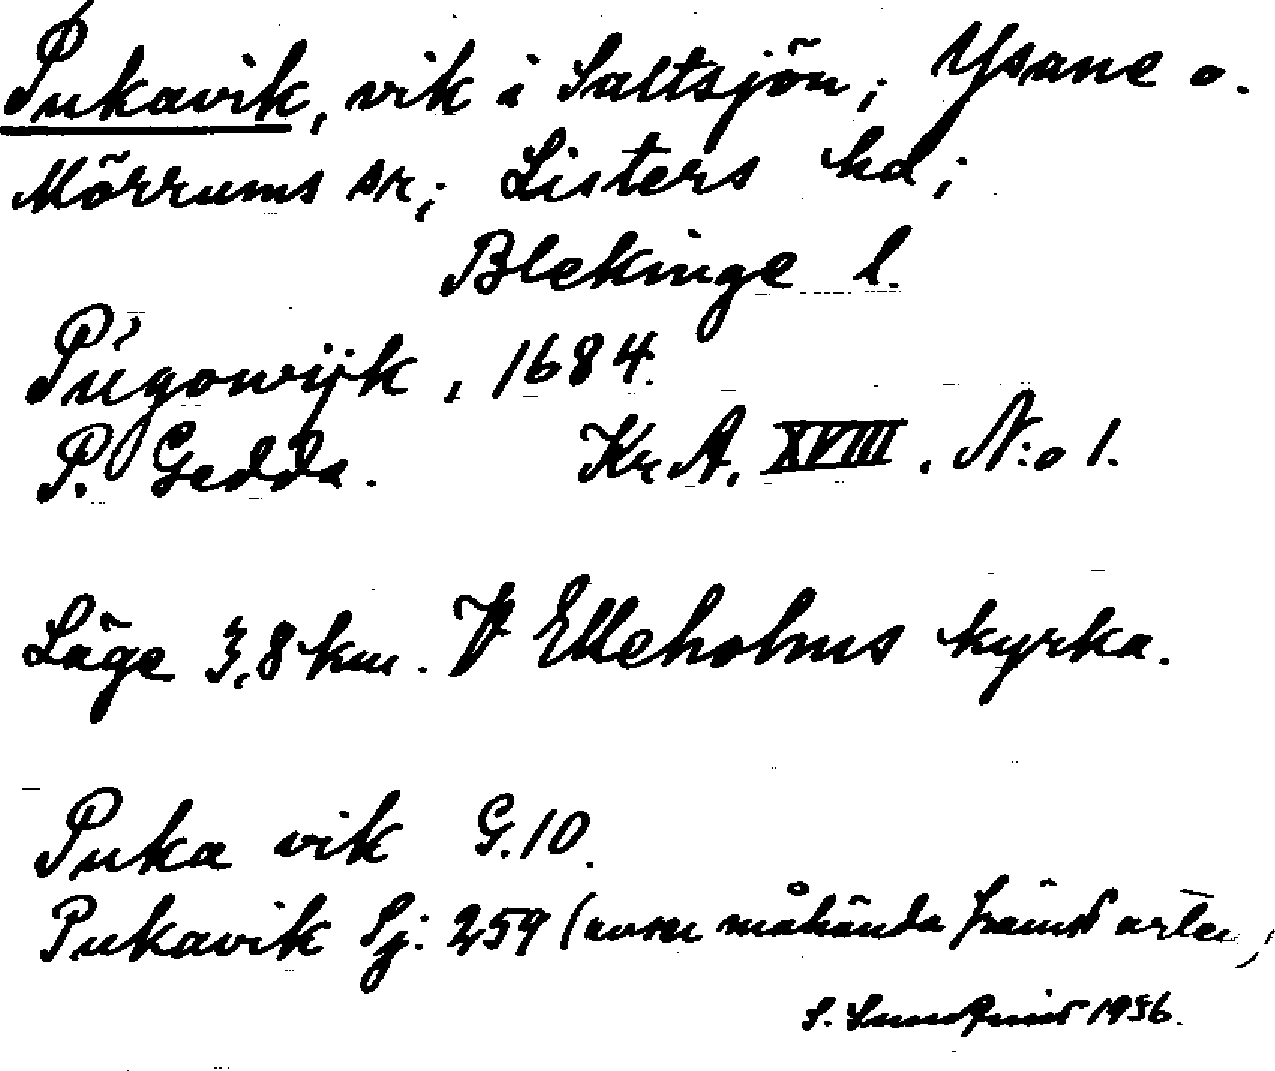 Pukavik, vik i Saltsjön; Ysane o.
Mörrums sn; Listers hd;
Blekinge l.
Pŭgowijk, 1684.
P. Gedda. Kr. A. XVIII. N:o 1.
Läge 3,8 km. V Elleholms kyrka.
Puka vik G.10.
Pukavik Sj: 259 (avser måhända främst orten)
S. Sundqvist 1936.